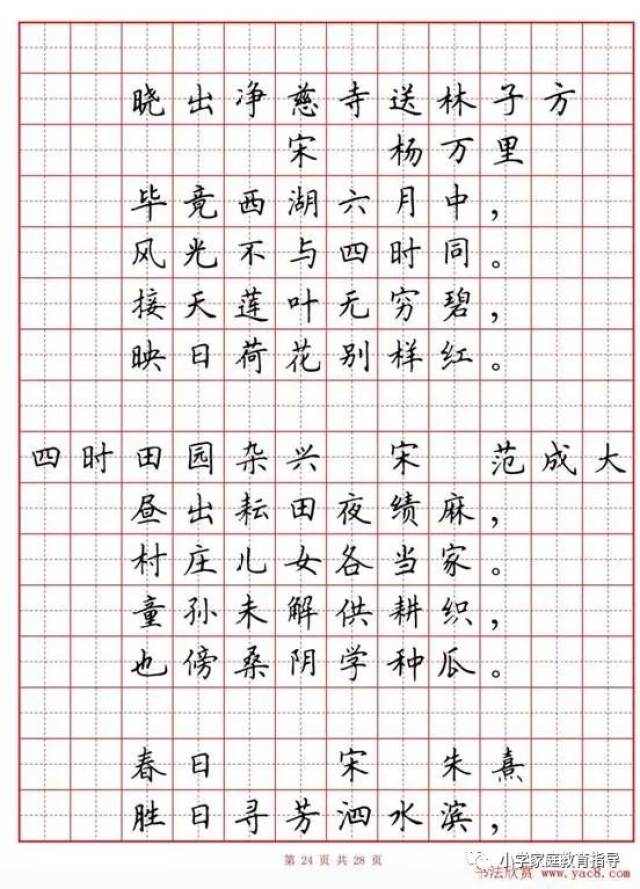 晓出净慈寺送林子方
宋 杨万里
毕竟西湖六月中，
风光不与四时同。
接天莲叶无穷碧，
映日荷花别样红。
四时田园杂兴 宋 范成大
昼出耘田夜绩麻，
村庄儿女各当家。
童孙未解供耕织，
也傍桑阴学种瓜。
春日 宋 朱熹
胜日寻芳泗水滨，
第 24 页 共 28 页
小学家庭教育指导
书法欣赏 www.yac8.com